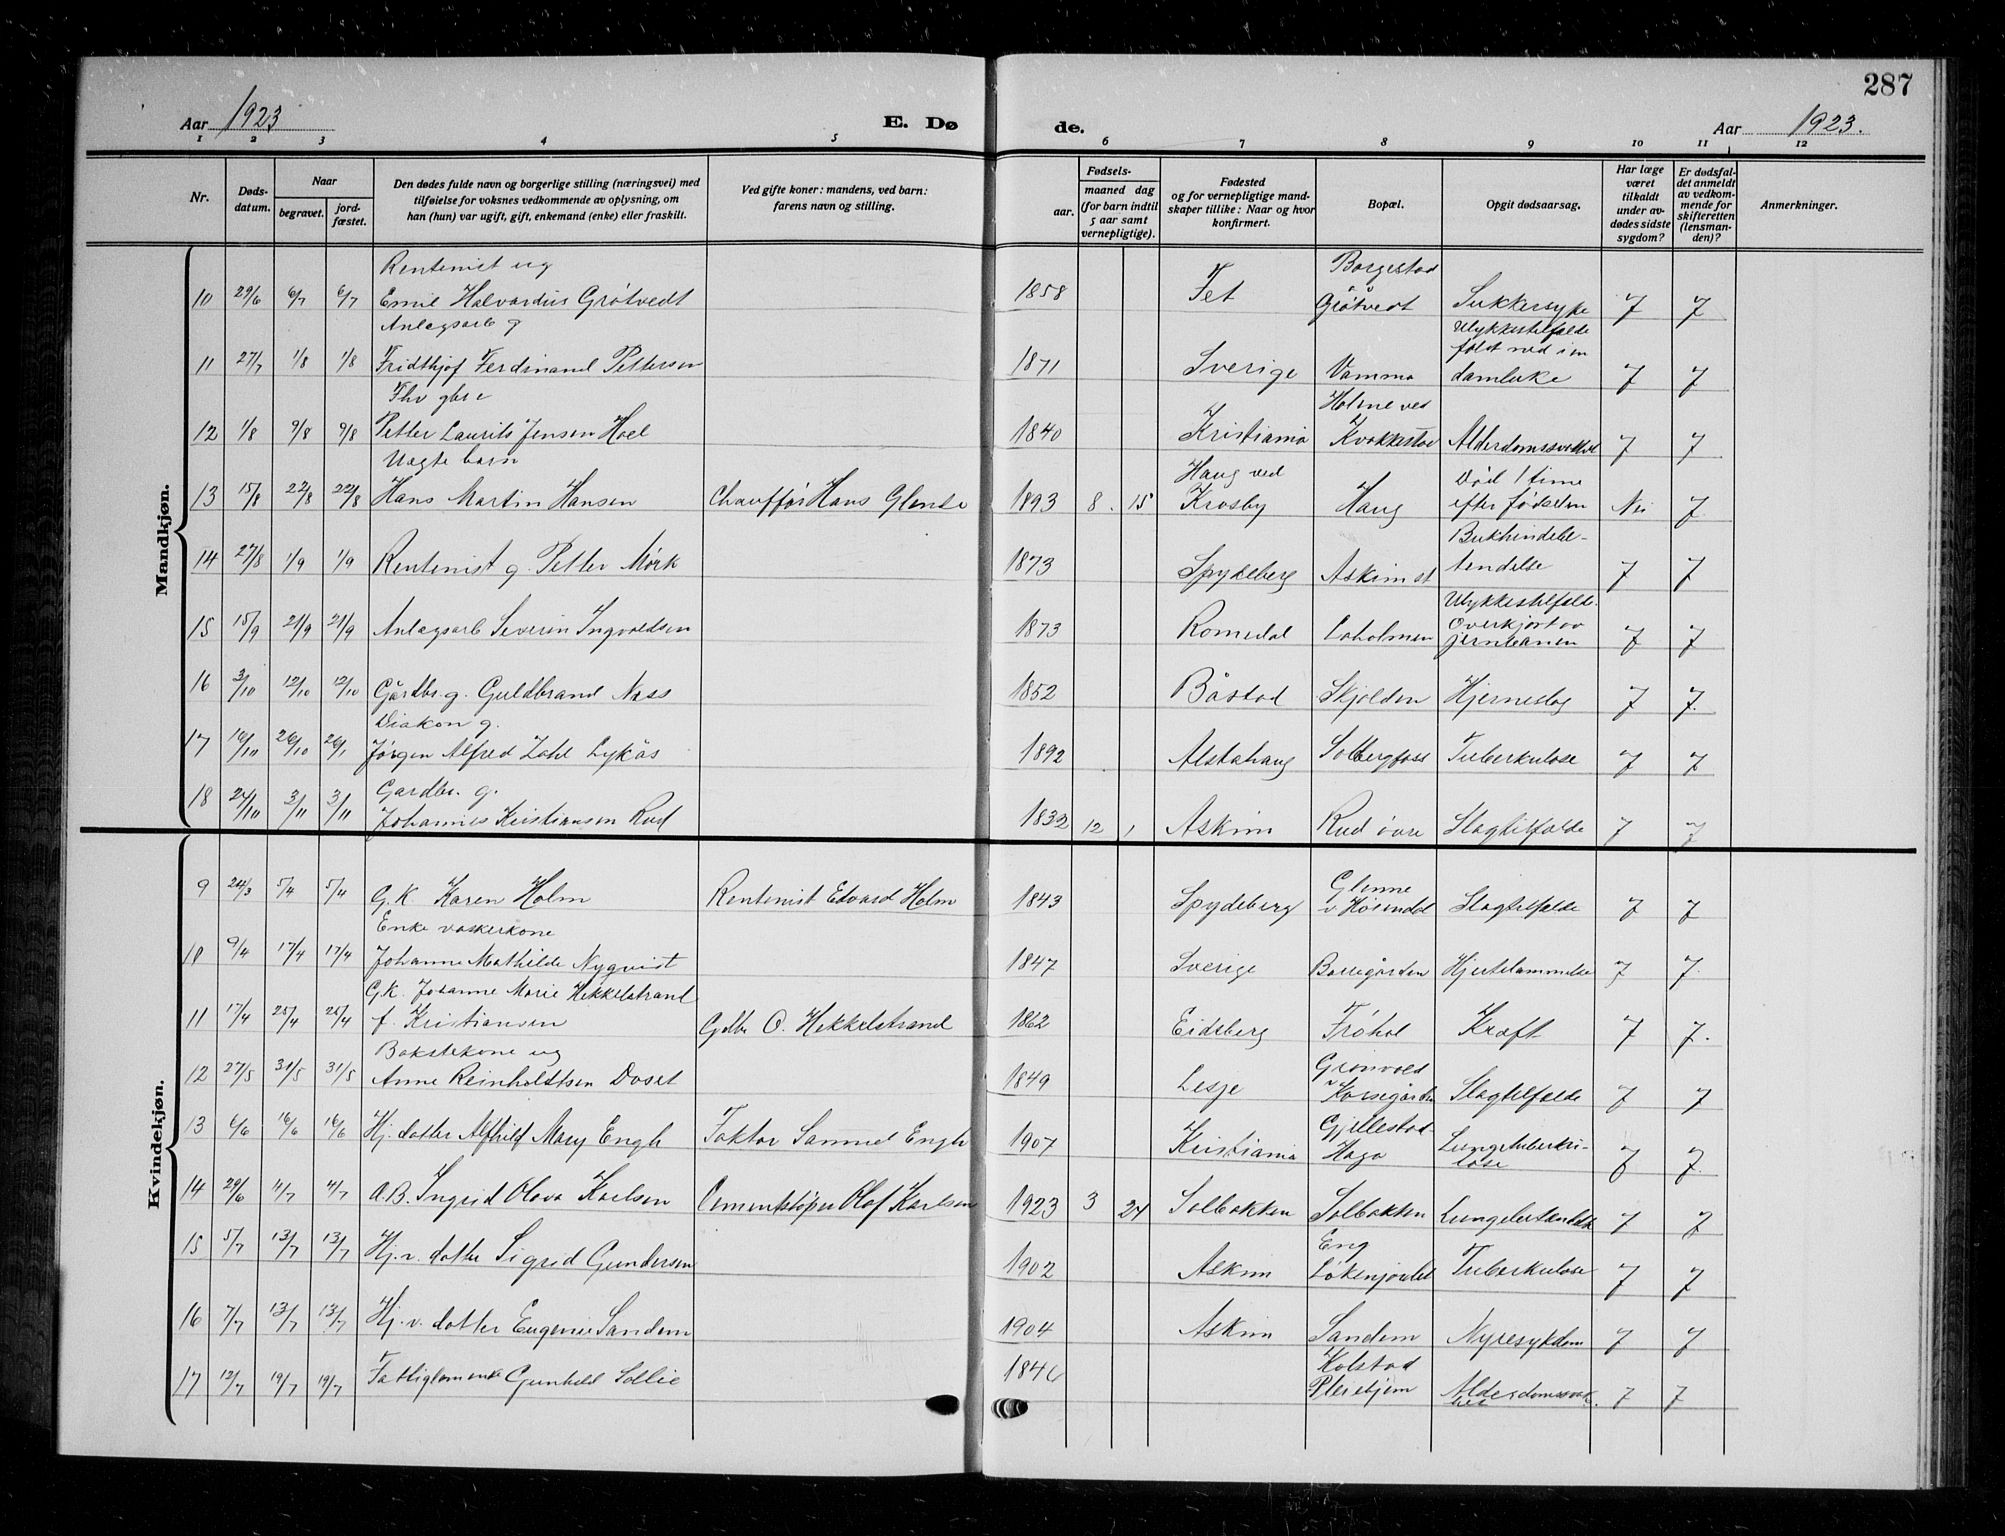 287
Aar 1923
E. Dø
de.
Aar 1923.
1 2 3 4 5 6 7 8 9 10 11 12
Nr.
Døds-
datum.
Naar
begravet.
jord-
fæstet.
Den dødes fulde navn og borgerlige stilling (næringsvei) med
tilføielse for voksnes vedkommende av oplysning, om
han (hun) var ugift, gift, enkemand (enke) eller fraskilt.
Ved gifte koner: mandens, ved barn:
farens navn og stilling.
Fødsels-
aar.
maaned dag
(for barn indtil
5 aar samt
vernepligtige).
Fødested
og for vernepligtige mand-
skaper tillike: Naar og hvor
konfirmert.
Bopæl.
Opgit dødsaarsag.
Har læge
været
tilkaldt
under av-
dødes sidste
sygdom?
Er dødsfal-
det anmeldt
av vedkom-
mende for
skifteretten
(lensman-
den)?
Anmerkninger.
Mandkjøn.
Rentenist ug Borgestad
10 29/6 6/7 6/7 Emil Halvardus Grøtvedt 1858 Fet Grøtvedt Sukkersyke J J
Anlægsarb g Ulykkestilfælde
faldt ned i en
11 27/7 1/8 1/8 Fridthjof Ferdinand Pettersen 1871 Sverige Vamma damluke J J
Fhv gbr e Holme ved
12 1/8 9/8 9/8 Petter Laurits Jensen Hoel 1840 Kristiania Kvakkestad Alderdomssvakhet J J
Uægte barn Haug ved Død 1 time
13 15/8 22/8 22/8 Hans Martin Hansen Chauffør Hans Glende 1893 8. 15 Krosby Haug efter fødselen Nei J.
Bukhindebe-
14 27/8 1/9 1/9 Rentenist g. Petter Mørk 1873 Spydeberg Askim st tendelse J J
Ulykkestilfælde.
Overkjørt av
15 15/9 21/9 21/9 Anlægsarb Severin Ingvaldsen 1873 Romedal jernbanen J J
16 3/10 12/10 12/10 Gårdbr. g. Guldbrand Næss 1852 Båstad Skjolden Hjerneslag J J.
Diakon g.
17 16/10 26/10 26/1 Jørgen Alfred Zahl Lykås 1892 Alstahaug Solbergfoss Tuberkulose J J
Gardbr. g.
18 24/10 3/11 3/11 Johannes Kristiansen Rud 1832 12 1 Askim Rud øvre Slagtilfælde J J
Kvindekjøn.
Glenne
9 24/3 5/4 5/4 G.K Karen Holm Rentenist Edvard Holm 1843 Spydeberg Slagtilfælde J J
Enke vaskerkone
10 9/4 17/4 17/4 Johanne Mathilde Nyqvist 1847 Sverige Borregården Hjertelammelse J J.
G.K. Johanne Marie Hekkelstrand
11 17/4 25/4 25/4 f. Kristiansen Gdbr O. Hekkelstrand 1862 Eidsberg Trøhol Kræft J J.
Bakstekone ug Grønvold
12 27/5 31/5 31/5 Anne Reinholdtsen Doset 1849 Lesje v Korsegården Slagtilfælde J J
Gjellestad
13 6/6 16/6 16/6 Hj. datter Alfhild Mary Engh Faktor Samuel Engh 1907 Kristiania Haga Lungetuberku-
lose J J.
14 29/6 4/7 4/7 A.B. Ingrid Olava Karlsen Cementstøper Olaf Karlsen 1923 3 24 Solbakken Solbakken J J
Eng
15 5/7 13/7 13/7 Hj.v. datter Sigrid Gundersen 1902 Askim Løkenjordet Tuberkulose J J
16 7/7 13/7 13/7 Hj.v. datter Eugenie Sandem 1904 Askim Sandem Nyresykdom J J
Kolstad
17 12/7 19/7 19/7 Fattiglem enke Gunhild Sollie 1846 Pleiehjem Alderdomssvak
het J J